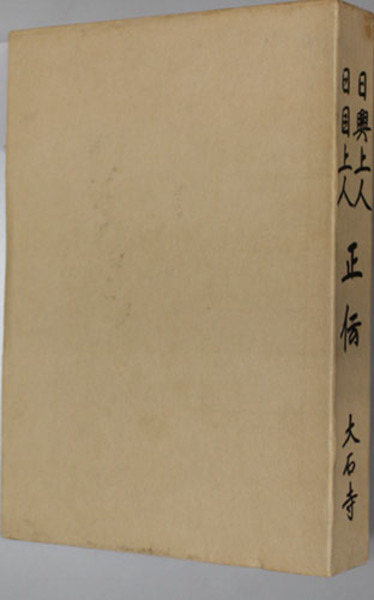 日興上人
日目上人
正伝
大石寺